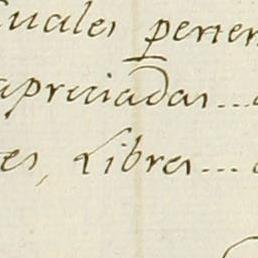 cuales perten
apreciadas...
es, Libres...